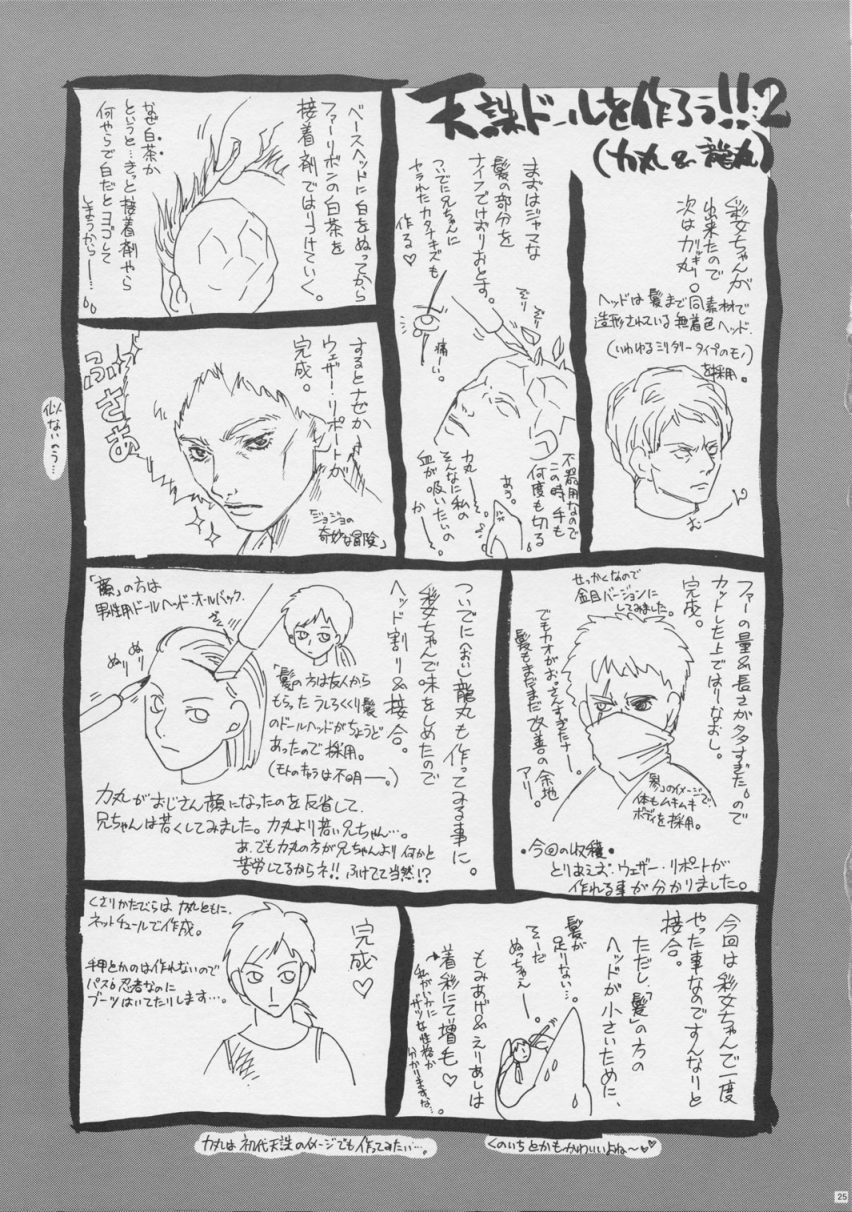 天誅ドールを作ろう!!2
(力丸&龍丸)
彩女ちゃんが
出来たので
次は力丸。
ヘッドは髪まで同素材で
造形されている無着色ヘッド。
(いわゆるミリタリータイプのモノ)
を採用。
まずはジャマな
髪の部分を
ナイフでけずりおとす。
ついでに兄ちゃんに
ヤラれたカタナキズも
作る♡
ぞり
ぞり
痛ーい。
不器用なので
この時手も
何度も切る
あう。
力丸ー。
そんなに私の
血が吸いたいの
かー。
ベースヘッドに白をぬってから
ファーリボンの白茶を
接着剤ではりつけていく。
なぜ白茶か
というと…きっと接着剤やら
何やらで白だとヨゴして
しまうからー…。
するとナゼか
ウェザー・リポートが
完成。
ふさぁ
「ジョジョの
奇妙な冒険」
似ないへう…
ファーの量&長さが多すぎた。ので
カットした上ではりなおし。
完成。
せっかくなので
金目バージョンに
してみました。
でもカオがおっさんすぎたナー。
髪もまだまだ改善の余地
アリ。
体もムキムキ
ボディを採用。
・今回の収穫・
とりあえず、ウェザー・リポートが
作れる事が分かりました。
ついでに(おい)龍丸も作ってみる事に。
彩女ちゃんで味をしめたので
ヘッド割り&接合。
男性用ドールヘッド・オールバック。
ぬり
ぬり
「髪」の方は友人から
もらったうしろくくり髪
のドールヘッドがちょうど
あったので採用。
(モトのキャラは不明ー。)
力丸がおじさん顔になったのを反省して、
兄ちゃんは若くしてみました。力丸より若い兄ちゃん…。
あ、でも力丸の方が兄ちゃんより何かと
苦労してるからネ!!ふけてて当然!?
今回は彩女ちゃんで一度
やった事なのですんなりと
接合。
ただし、「髪」の方の
ヘッドが小さいために、
髪が
足りない…。
そーだ
ぬっちゃえー。
もみあげ&えりあしは
着彩にて増毛♡
私がいかに
ザツな性格か
分かりますな…。
完成♡
くさりかたびらは力丸ともに、
ネットチュールで作成。
手甲とかのは作れないので
パス。忍者なのに
ブーツはいてたりします…。
力丸は初代天誅のイメージでも作ってみたい…。
くのいちとかもかわいいよね〜♡♡
25